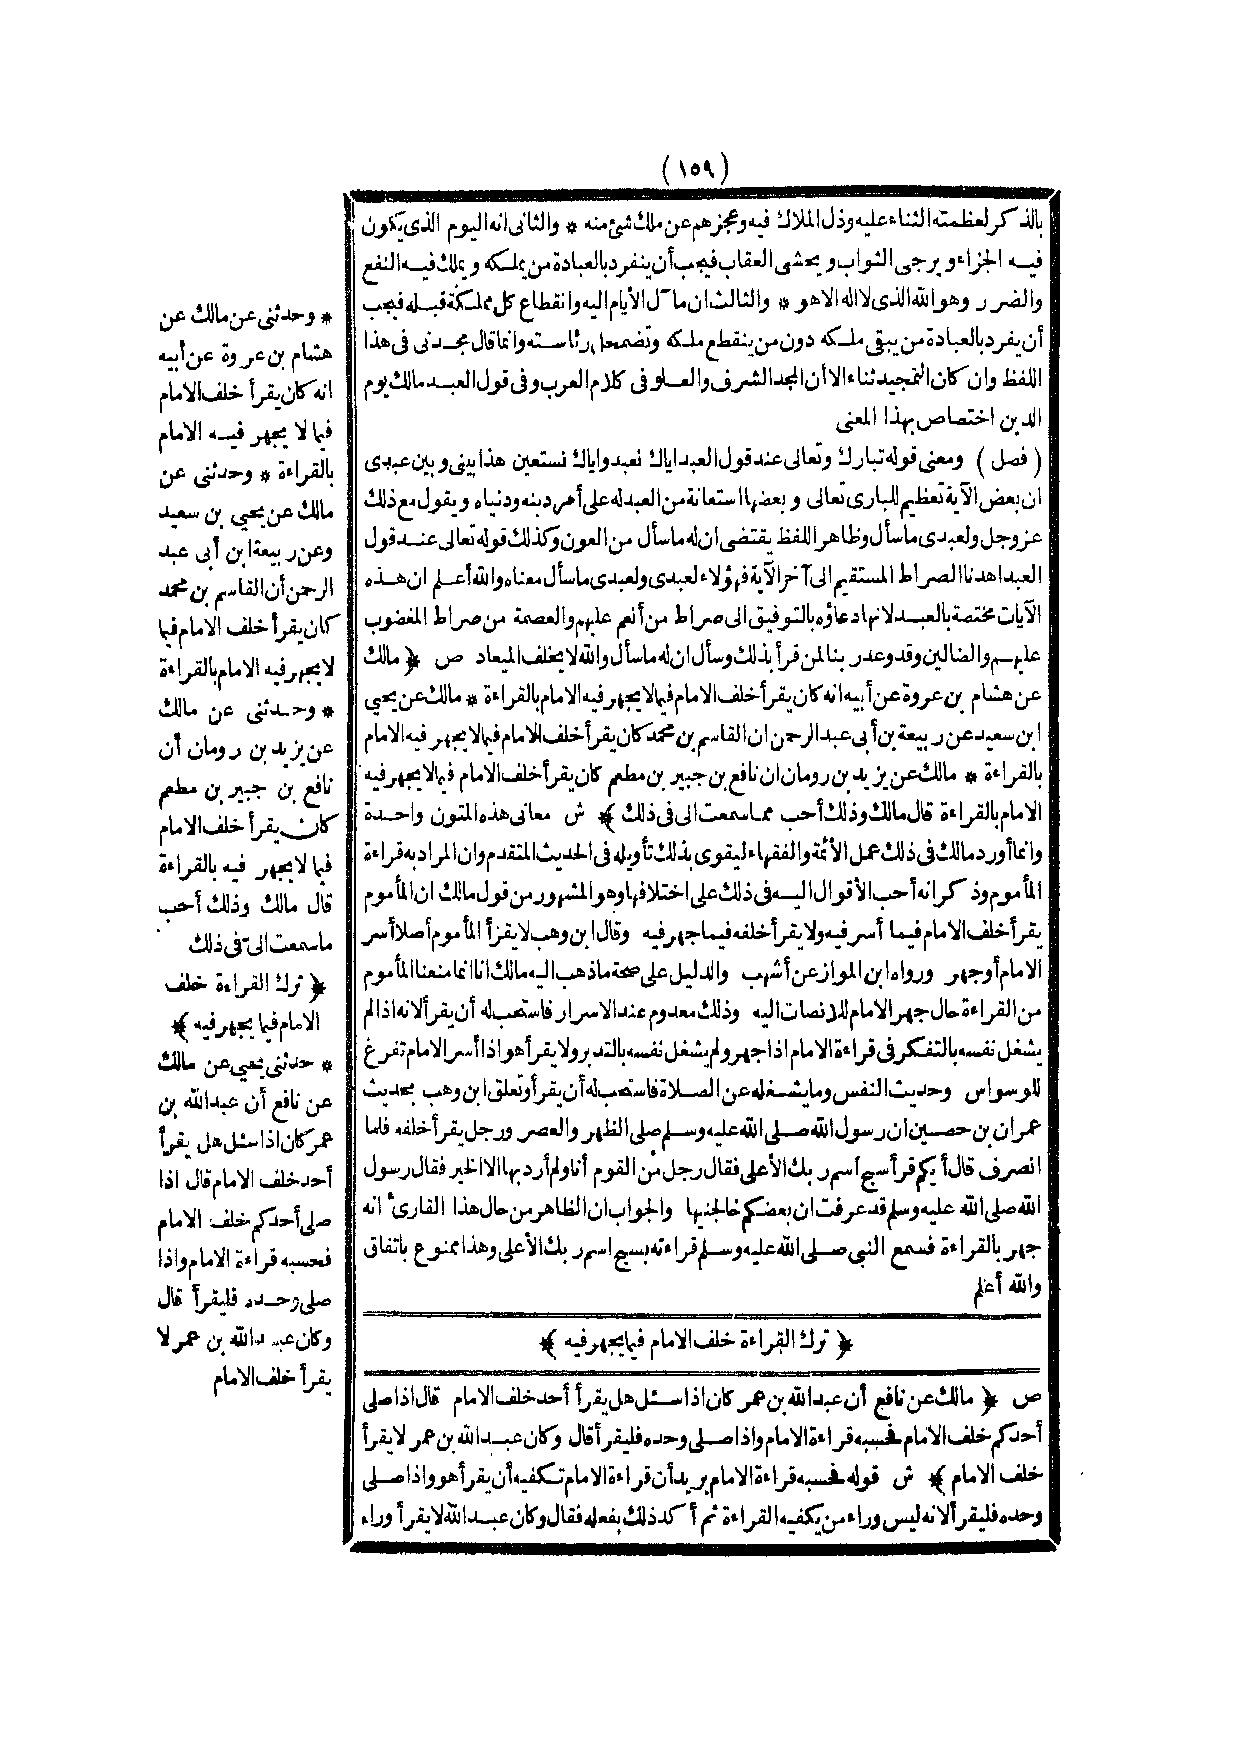 (١٥٩)
بالذكر لعظمته الثناء عليه وذل الملاك فيه وعجزهم عن ملك شئ منه * والثانى انه اليوم الذى يكون
فيه الجزاء ويرجى الثواب ويخشى العقاب فيجب أن ينفرد بالعبادة من يملكه ويملك فيه النفع
والضرر وهو الله الذى لا اله الا هو * والثالث ان مآل الأيام اليه وانقطاع كل مملكة قبله فيجب
أن يفرد بالعبادة من يبقى ملكه دون من ينقطع ملكه وتضمحل رئاسته وانما قال مجدنى فى هذا
اللفظ وان كان التمجيد ثناء الا أن المجد الشرف والعلو فى كلام العرب وفى قول العبد مالك يوم
الدين اختصاص بهذا المعنى
(فصل) ومعنى قوله تبارك وتعالى عند قول العبد اياك نعبد واياك نستعين هذا بينى وبين عبدى
ان بعض الآية تعظيم للبارى تعالى وبعضها استعانة من العبد له على أمر دينه ودنياه ويقول مع ذلك
عز وجل ولعبدى ما سأل وظاهر اللفظ يقتضى ان له ما سأل من العون وكذلك قوله تعالى عند قول
العبد اهدنا الصراط المستقيم الى آخر الآية فهؤلاء لعبدى ولعبدى ما سأل معناه والله أعلم ان هذه
الآيات مختصة بالعبد لانها دعاؤه بالتوفيق الى صراط من أنعم عليهم والعصمة من صراط المغضوب
عليهم والضالين وقد وعد ربنا لمن قرأ بذلك وسأل ان له ما سأل والله لا يخلف الميعاد ص ﴿ مالك
عن هشام بن عروة عن أبيه انه كان يقرأ خلف الامام فيما لا يجهر فيه الامام بالقراءة * مالك عن يحيى
ابن سعيد عن ربيعة بن أبى عبد الرحمن ان القاسم بن محمد كان يقرأ خلف الامام فيما لا يجهر فيه الامام
بالقراءة * مالك عن يزيد بن رومان ان نافع بن جبير بن مطعم كان يقرأ خلف الامام فيما لا يجهر فيه
الامام بالقراءة قال مالك وذلك أحب ما سمعت الى فى ذلك ﴾ ش معانى هذه المتون واحدة
وانما أورد مالك فى ذلك عمل الأئمة والفقهاء ليقوى بذلك تأويله فى الحديث المتقدم وان المراد به قراءة
المأموم وذكر انه أحب الأقوال اليه فى ذلك على اختلافها وهو المشهور من قول مالك ان المأموم
يقرأ خلف الامام فيما أسر فيه ولا يقرأ خلفه فيما جهر فيه وقال ابن وهب لا يقرأ المأموم أصلا أسر
الامام أو جهر ورواه ابن المواز عن أشهب والدليل على صحة ما ذهب اليه مالك انا انما منعنا المأموم
من القراءة حال جهر الامام للانصات اليه وذلك معدوم عند الاسرار فاستحب له أن يقرأ لانه اذا لم
يشغل نفسه بالتفكر فى قراءة الامام اذا جهر ولم يشغل نفسه بالتدبر ولا يقرأ هو اذا أسر الامام تفرغ
للوسواس وحديث النفس وما يشغله عن الصلاة فاستحب له أن يقرأ وتعلق ابن وهب بحديث
عمران بن حصين ان رسول الله صلى الله عليه وسلم صلى الظهر والعصر ورجل يقرأ خلفه فلما
انصرف قال أيكم قرأ سبح اسم ربك الأعلى فقال رجل من القوم أنا ولم أرد بها الا الخير فقال رسول
الله صلى الله عليه وسلم قد عرفت ان بعضكم خالجنيها والجواب ان الظاهر من حال هذا القارئ انه
جهر بالقراءة فسمع النبى صلى الله عليه وسلم قراءته بسبح اسم ربك الأعلى وهذا ممنوع باتفاق
والله أعلم
﴿ ترك القراءة خلف الامام فيما يجهر فيه ﴾
ص ﴿ مالك عن نافع أن عبد الله بن عمر كان اذا سئل هل يقرأ أحد خلف الامام قال اذا صلى
أحدكم خلف الامام فحسبه قراءة الامام واذا صلى وحده فليقرأ قال وكان عبد الله بن عمر لا يقرأ
خلف الامام ﴾ ش قوله فحسبه قراءة الامام يريد أن قراءة الامام تكفيه أن يقرأ هو واذا صلى
وحده فليقرأ لانه ليس وراء من يكفيه القراءة ثم أكد ذلك بفعله فقال وكان عبد الله لا يقرأ وراء
* وحدثنى عن مالك عن
هشام بن عروة عن أبيه
انه كان يقرأ خلف الامام
فيما لا يجهر فيه الامام
بالقراءة * وحدثنى عن
مالك عن يحيى بن سعيد
وعن ربيعة ابن أبى عبد
الرحمن أن القاسم بن محمد
كان يقرأ خلف الامام فيما
لا يجهر فيه الامام بالقراءة
* وحدثنى عن مالك
عن يزيد بن رومان أن
نافع بن جبير بن مطعم
كان يقرأ خلف الامام
فيما لا يجهر فيه بالقراءة
قال مالك وذلك أحب
ما سمعت الىّ فى ذلك
﴿ ترك القراءة خلف
الامام فيما يجهر فيه ﴾
* حدثنى يحيى عن مالك
عن نافع أن عبد الله بن
عمر كان اذا سئل هل يقرأ
أحد خلف الامام قال اذا
صلى أحدكم خلف الامام
فحسبه قراءة الامام واذا
صلى وحده فليقرأ قال
وكان عبد الله بن عمر لا
يقرأ خلف الامام